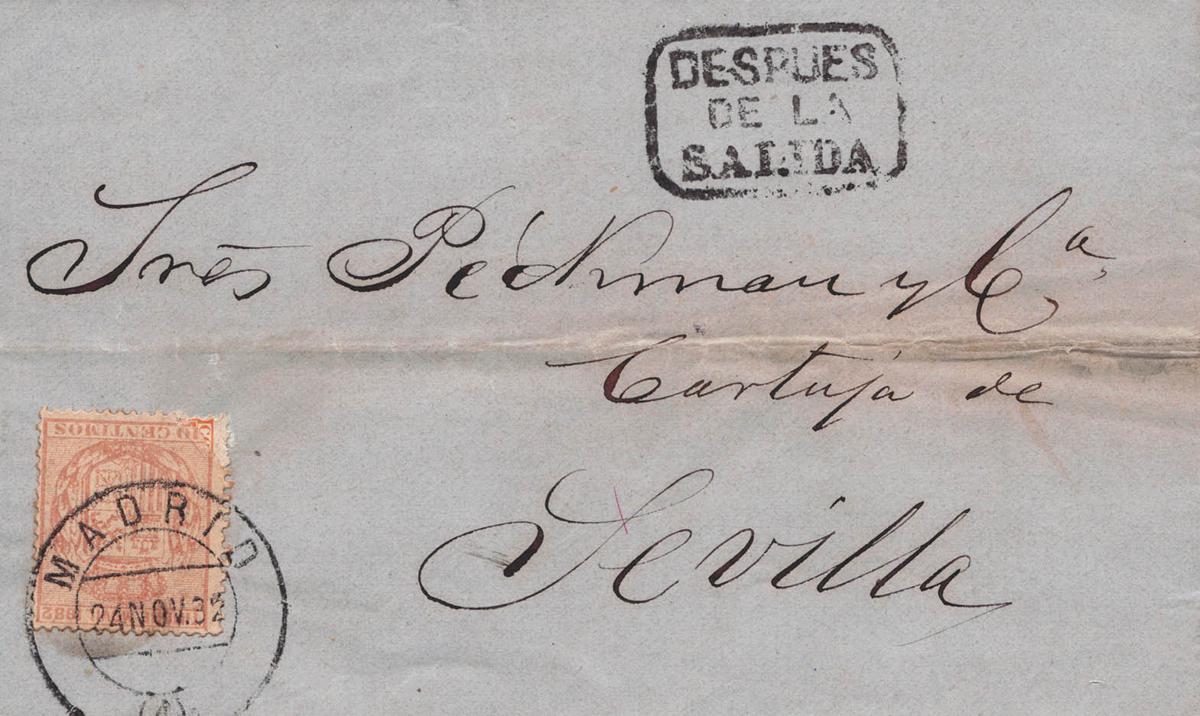 DESPUES
DE LA
SALIDA
Srēs Péckman y Cª,
Cartuja de
Sevilla
10 CENTIMOS
MADRID
24 NOV. 82
(1)